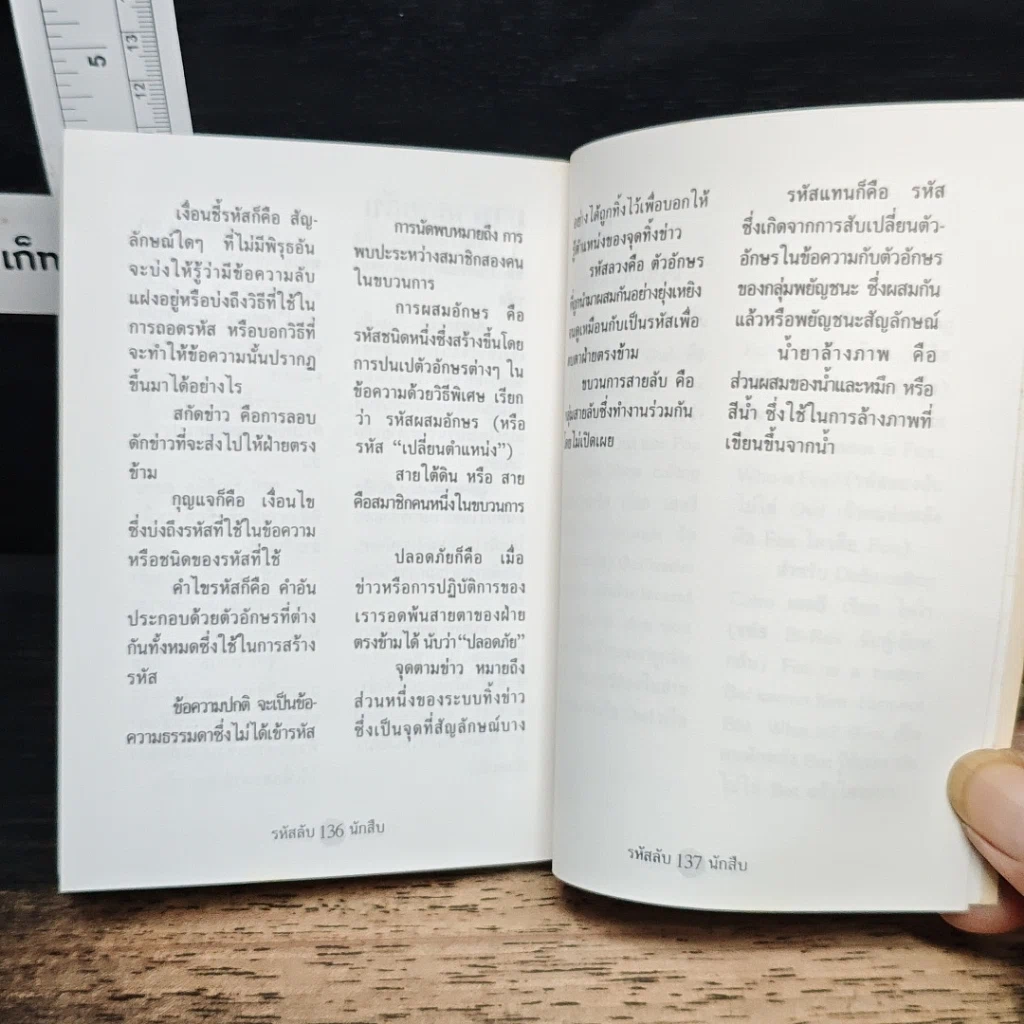 5
13
12
เก็ท
เงื่อนชี้รหัสก็คือ สัญ-
ลักษณ์ใดๆ ที่ไม่มีพิรุธอัน
จะบ่งให้รู้ว่ามีข้อความลับ
แฝงอยู่หรือบ่งถึงวิธีที่ใช้ใน
การถอดรหัส หรือบอกวิธีที่
จะทำให้ข้อความนั้นปรากฏ
ขึ้นมาได้อย่างไร
สกัดข่าว คือการลอบ
ดักข่าวที่จะส่งไปให้ฝ่ายตรง
ข้าม
กุญแจก็คือ เงื่อนไข
ซึ่งบ่งถึงรหัสที่ใช้ในข้อความ
หรือชนิดของรหัสที่ใช้
คำไขรหัสก็คือ คำอัน
ประกอบด้วยตัวอักษรที่ต่าง
กันทั้งหมดซึ่งใช้ในการสร้าง
รหัส
ข้อความปกติ จะเป็นข้อ-
ความธรรมดาซึ่งไม่ได้เข้ารหัส
การนัดพบหมายถึง การ
พบปะระหว่างสมาชิกสองคน
ในขบวนการ
การผสมอักษร คือ
รหัสชนิดหนึ่งซึ่งสร้างขึ้นโดย
การปนเปตัวอักษรต่างๆ ใน
ข้อความด้วยวิธีพิเศษ เรียก
ว่า รหัสผสมอักษร (หรือ
รหัส “เปลี่ยนตำแหน่ง”)
สายใต้ดิน หรือ สาย
คือสมาชิกคนหนึ่งในขบวนการ
ปลอดภัยก็คือ เมื่อ
ข่าวหรือการปฏิบัติการของ
เรารอดพ้นสายตาของฝ่าย
ตรงข้ามได้ นับว่า“ปลอดภัย”
จุดตามข่าว หมายถึง
ส่วนหนึ่งของระบบทิ้งข่าว
ซึ่งเป็นจุดที่สัญลักษณ์บาง
รหัสลับ 136 นักสืบ
อย่างได้ถูกทิ้งไว้เพื่อบอกให้
รู้ตำแหน่งของจุดทิ้งข่าว
รหัสลวงคือ ตัวอักษร
ที่ถูกนำมาผสมกันอย่างยุ่งเหยิง
จนดูเหมือนกับเป็นรหัสเพื่อ
ตบตาฝ่ายตรงข้าม
ขบวนการสายลับ คือ
กลุ่มสายลับซึ่งทำงานร่วมกัน
โดยไม่เปิดเผย
รหัสแทนก็คือ รหัส
ซึ่งเกิดจากการสับเปลี่ยนตัว-
อักษรในข้อความกับตัวอักษร
ของกลุ่มพยัญชนะ ซึ่งผสมกัน
แล้วหรือพยัญชนะสัญลักษณ์
น้ำยาล้างภาพ คือ
ส่วนผสมของน้ำและหมึก หรือ
สีน้ำ ซึ่งใช้ในการล้างภาพที่
เขียนขึ้นจากน้ำ
รหัสลับ 137 นักสืบ